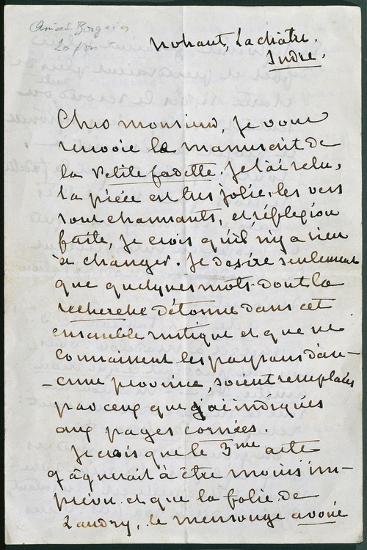 Nohant, La châtre.
Indre.
Cher monsieur, je vous
renvoie le manuscrit de
la Petite fadette. Je l'ai relu,
la pièce est très jolie, les vers
sont charmants, et réflexion
faite, je crois qu'il n'y a rien
à changer. Je désire seulement
que quelques mots dont la
recherche détonne dans cet
ensemble rustique et que ne
connaissent les paysans d'au-
-cune province, soient remplacés
par ceux que j'ai indiqués
aux pages cornées.
Je crois que le 3me acte
gagnerait à être moins im-
prévu et que la folie de
Landry, le mensonge avoué